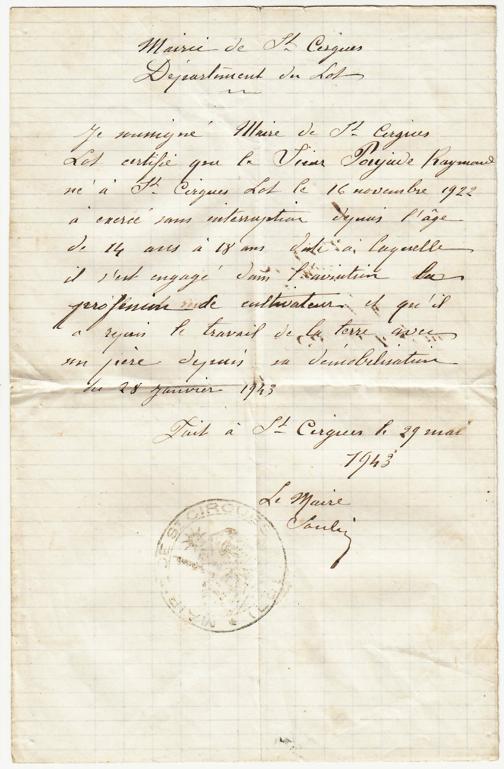 Mairie de St Cirgues
Département du Lot
Je soussigné Maire de St Cirgues
Lot certifie que le Sieur Poujade Raymond
né à St Cirgues Lot le 16 novembre 1922
a exercé sans interruption depuis l'âge
de 14 ans à 18 ans date à laquelle
il s'est engagé dans l'aviation la
profession de cultivateur et qu'il
a repris le travail de la terre avec
son père depuis sa démobilisation
du 28 janvier 1943
Fait à St Cirgues le 29 mai
1943
Le Maire
MAIRIE DE ST CIRGUES (LOT)